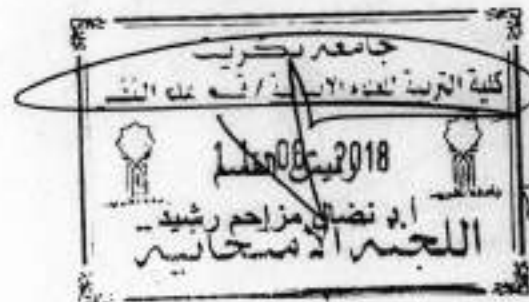 جامعة تكريت
كلية التربية للعلوم الانسانية / قسم علم النفس
2018
أ.د نضال مزاحم رشيد
اللجنة الامتحانية